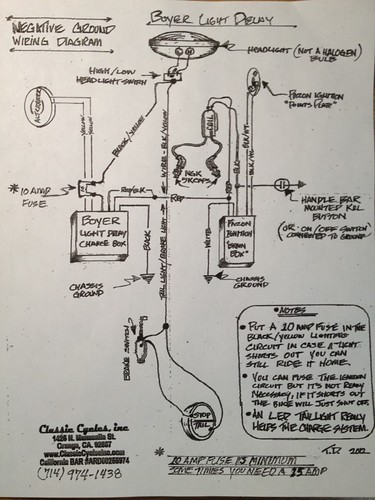 Negative Ground
Wiring Diagram
Boyer Light Delay
Headlight (Not a Halogen)
Bulb
High/Low
Headlight Switch
Pazon Ignition
"Points Plate"
Alternator
Yellow
Yellow
Black/Yellow
Coil
NGK
5K Caps
* 10 Amp
Fuse
Red/Blk
Red
Red
Blk
Handle Bar
Mounted Kill
Button
(or "on/off switch"
connected to ground)
Boyer
Light Delay
Charge Box
Black
White
Pazon
Ignition
"Brain
Box"
Chassis
Ground
Chassis
Ground
Brake Switch
Stop
Tail
• Notes •
• Put a 10 Amp fuse in the
Black/Yellow lighting
circuit in case a light
shorts out you can
still ride it home.
• You can fuse the ignition
circuit but it's not really
necessary, if it shorts out
the bike will just shut off.
• An LED taillight really
helps the charge system.
Classic Cycles, inc
Orange, CA. 92867
www.ClassicCyclesinc.com
(714) 974-1438
* 10 Amp fuse is minimum
some times you need a 15 Amp